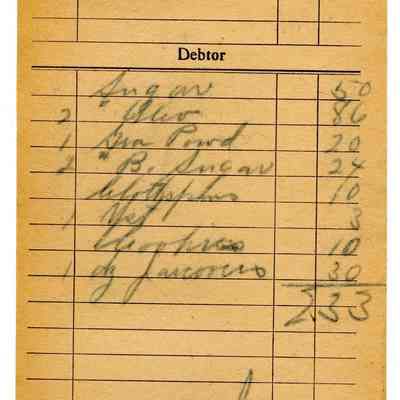 Debtor
Sugar 50
2 " Oleo 86
1 Powd 20
2 " B. Sugar 24
Clothspins 10
1 Yst 3
10
1 dz Jarcovers 30
233